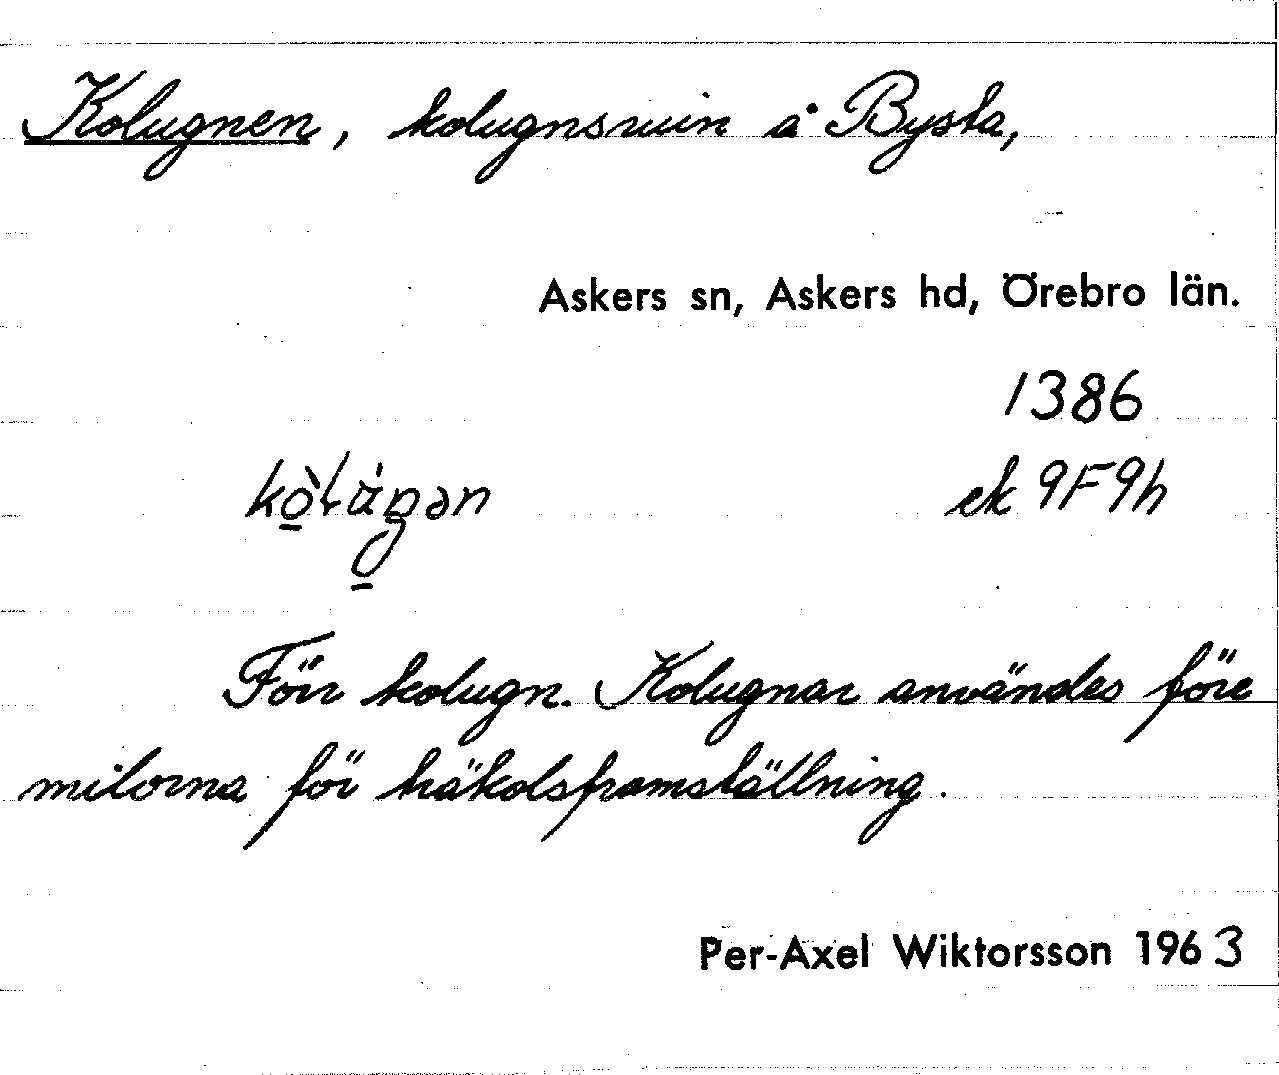 Kolugnen, kolugnsruin å Bysta,
Askers sn, Askers hd, Örebro län.
1386
ek 9F9h
Förr kolugn. Kolugnar användes före
milorna för träkolsframställning.
Per-Axel Wiktorsson 1963